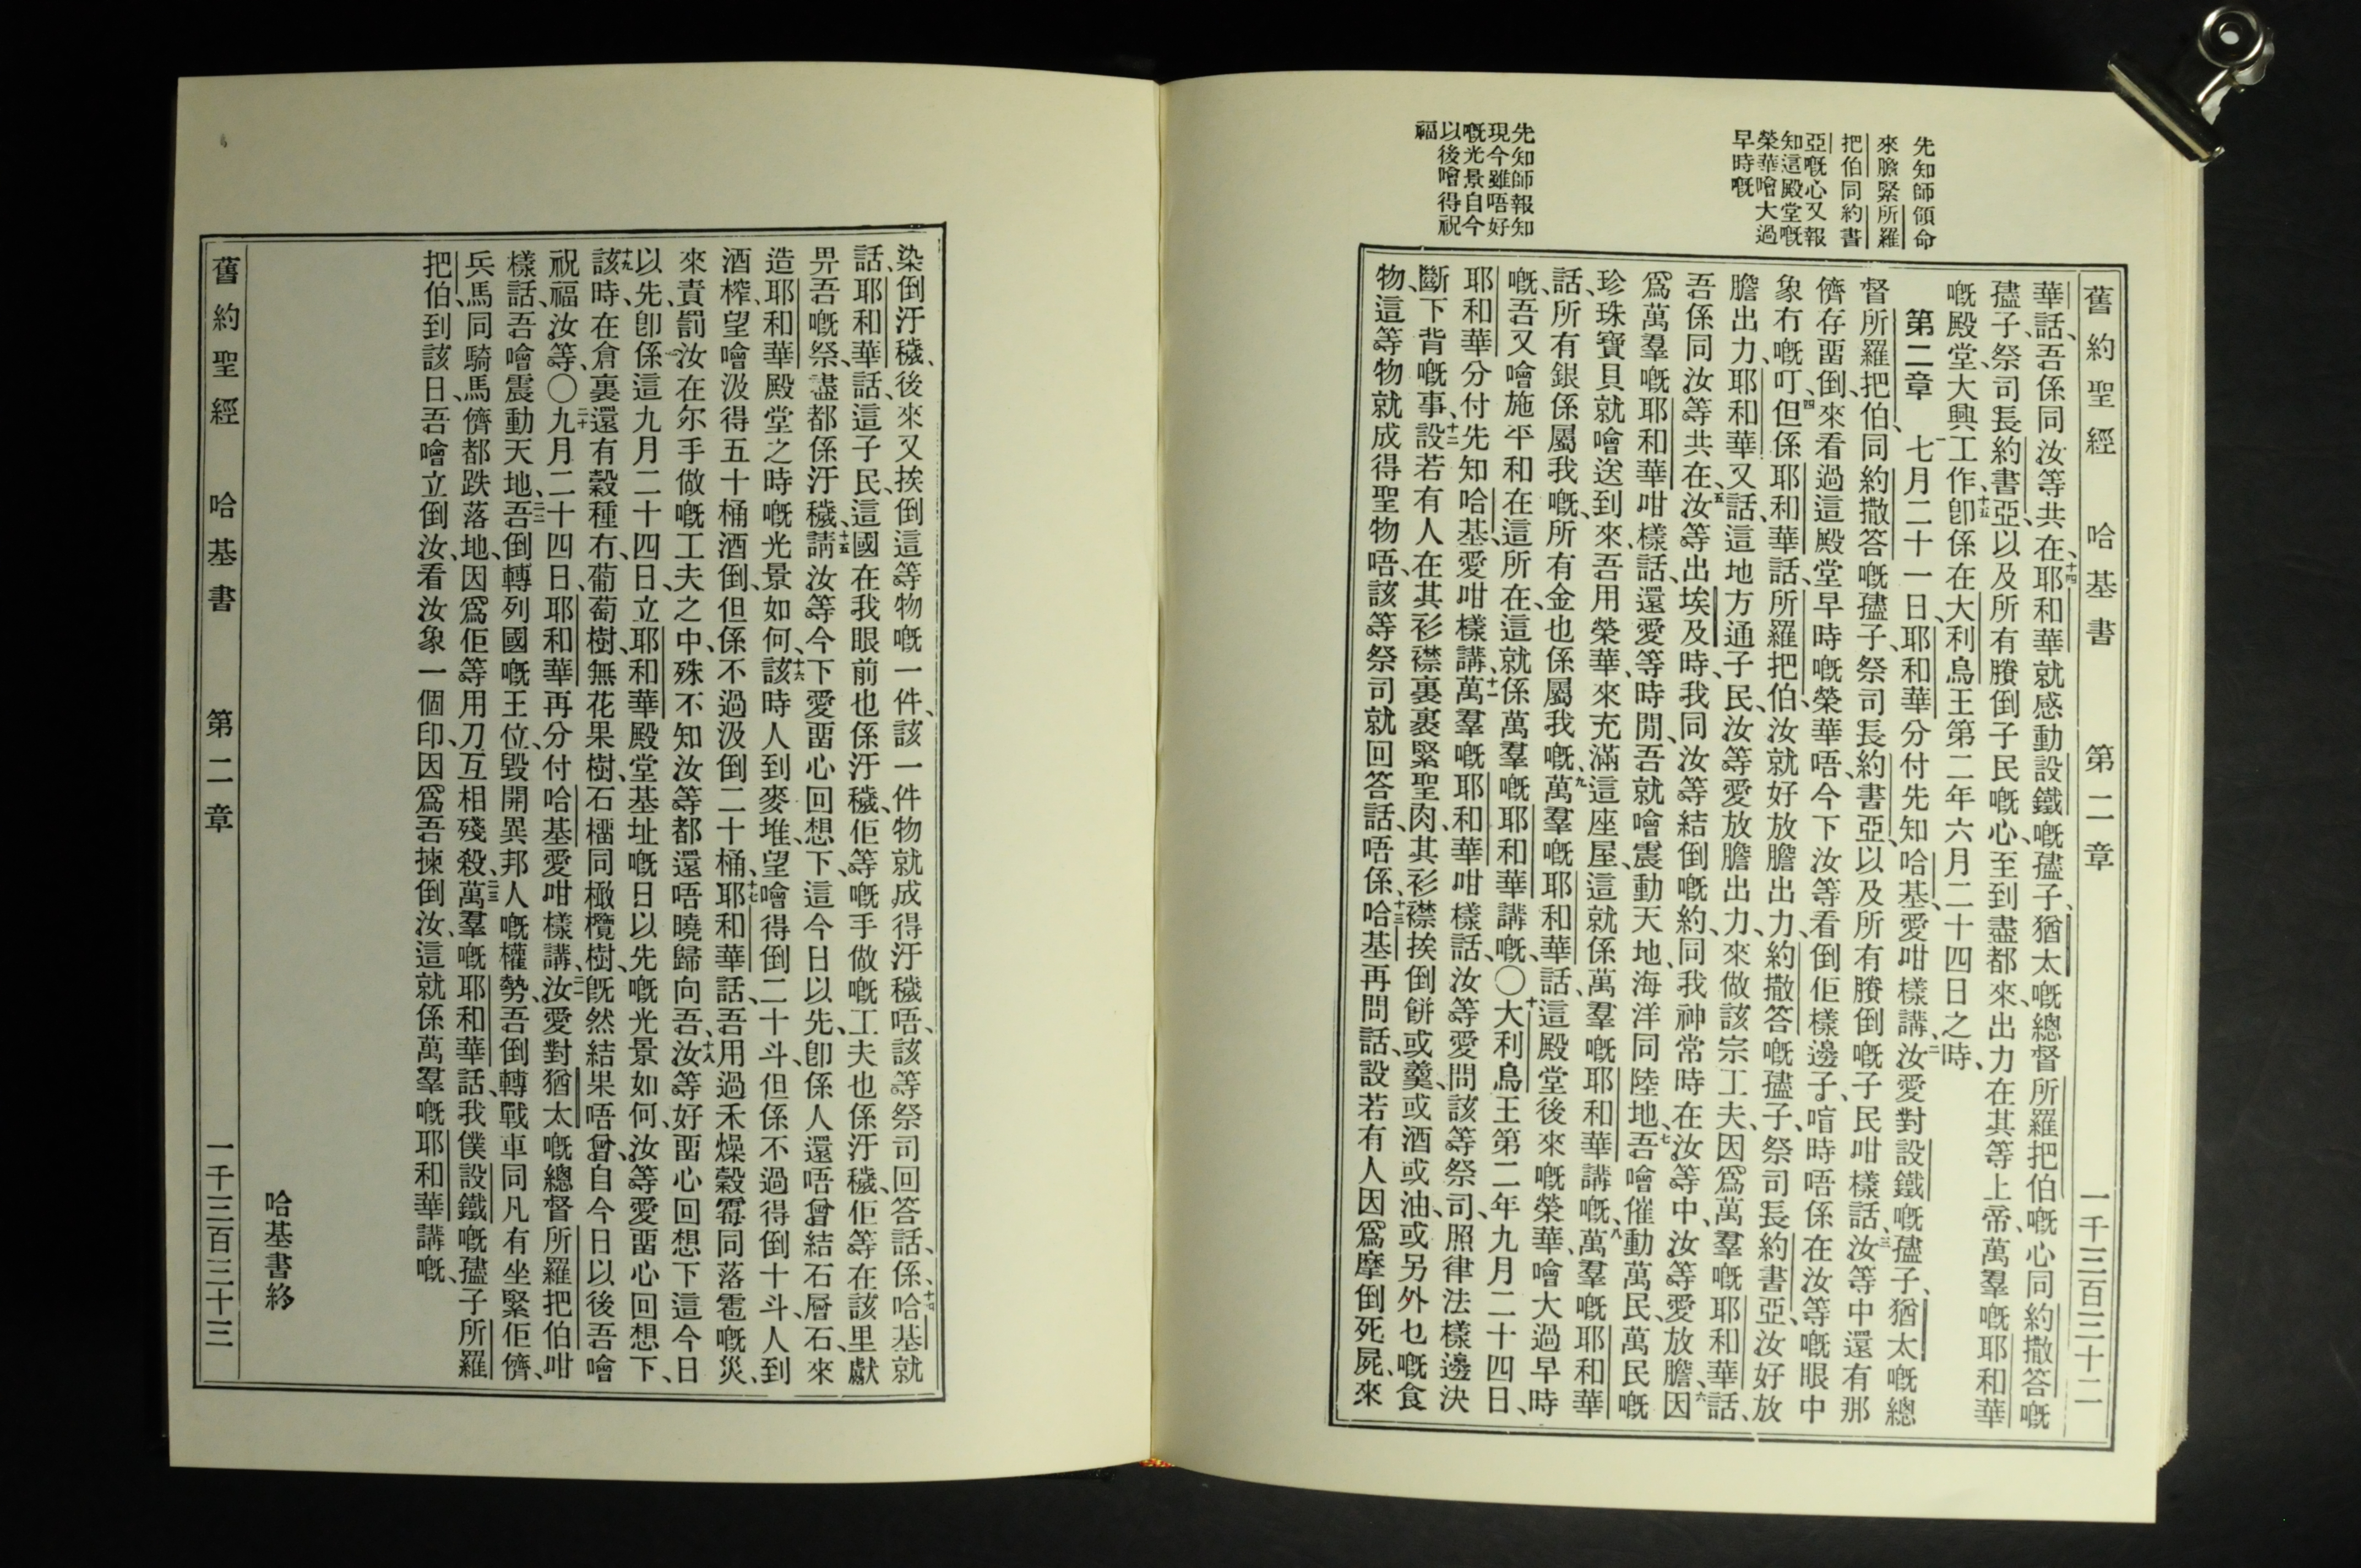 舊約聖經 哈基書 第二章 一千三百三十二
先知師領命
來膽緊所羅
把伯同約書
亞嘅心又報
知這殿堂嘅
榮華噲大過
早時嘅
先知師報知
現今雖唔好
嘅光景自今
以後噲得祝
福
華話、吾係同汝等共在、十四耶和華就感動設鐵嘅孻子、猶太嘅總督所羅把伯嘅心同約撒答嘅
孻子、祭司長約書亞、以及所有賸倒子民嘅心、至到盡都來、出力在其等上帝、萬羣嘅耶和華
嘅殿堂、大興工作、十五卽係在大利烏王第二年六月二十四日之時、
第二章 一七月二十一日、耶和華分付先知哈基、愛咁樣講、二汝愛對設鐵嘅孻子、猶太嘅總
督所羅把伯、同約撒答嘅孻子、祭司長約書亞、以及所有賸倒嘅子民咁樣話、三汝等中還有那
儕存畱倒、來看過這殿堂早時嘅榮華唔、今下汝等看倒佢樣邊子、喧時唔係在汝等嘅眼中
象冇嘅叮、四但係耶和華話、所羅把伯、汝就好放膽出力、約撒答嘅孻子、祭司長約書亞、汝好放
膽出力、耶和華又話、這地方通子民、汝等愛放膽出力、來做該宗工夫、因爲萬羣嘅耶和華話、
吾係同汝等共在、五汝等出埃及時、我同汝等結倒嘅約、同我神常時在汝等中、汝等愛放膽、六因
爲萬羣嘅耶和華咁樣話、還愛等時閒、吾就噲震動天地、海洋同陸地、七吾噲催動萬民、萬民嘅
珍珠寶貝就噲送到來、吾用榮華、來充滿這座屋、這就係萬羣嘅耶和華講嘅、八萬羣嘅耶和華
話、所有銀係屬我嘅、所有金也係屬我嘅、九萬羣嘅耶和華話、這殿堂後來嘅榮華、噲大過早時
嘅、吾又噲施平和在這所在、這就係萬羣嘅耶和華講嘅、〇十大利烏王第二年九月二十四日、
耶和華分付先知哈基、愛咁樣講、十一萬羣嘅耶和華咁樣話、汝等愛問該等祭司、照律法樣邊決
斷下背嘅事、十二設若有人在其衫襟裏裹緊聖肉、其衫襟挨倒餅或羹、或酒或油、或另外乜嘅食
物、這等物就成得聖物唔、該等祭司就回答話、唔係、十三哈基再問話、設若有人因爲摩倒死屍、來
染倒汙穢、後來又挨倒這等物嘅一件、該一件物就成得汙穢唔、該等祭司回答話、係、十四哈基就
話、耶和華話、這子民、這國在我眼前也係汙穢、佢等嘅手做嘅工夫也係汙穢、佢等在該里獻
畀吾嘅祭、盡都係汙穢、十五請汝等今下愛畱心回想下、這今日以先、卽係人還唔曾結石層石、來
造耶和華殿堂之時嘅光景如何、十六該時人到麥堆、望噲得倒二十斗、但係不過得倒十斗、人到
酒榨、望噲汲得五十桶酒倒、但係不過汲倒二十桶、十七耶和華話、吾用過禾燥榖霉同落雹嘅災、
來責罰汝在尔手做嘅工夫之中、殊不知汝等都還唔曉歸向吾、十八汝等好畱心回想下這今日
以先、卽係這九月二十四日、立耶和華殿堂基址嘅日以先嘅光景如何、汝等愛畱心回想下、
十九該時、在倉裏還有穀種冇、葡萄樹、無花果樹、石榴同橄欖樹、旣然結果唔曾、自今日以後吾噲
祝福汝等、〇二十九月二十四日、耶和華再分付哈基愛咁樣講、二一汝愛對猶太嘅總督所羅把伯咁
樣話、吾噲震動天地、二二吾倒轉列國嘅王位、毀開異邦人嘅權勢、吾倒轉戰車同凡有坐緊佢儕、
兵馬同騎馬儕都跌落地、因爲佢等用刀互相殘殺、二三萬羣嘅耶和華話、我僕設鐵嘅孻子所羅
把伯、到該日、吾噲立倒汝、看汝象一個印、因爲吾揀倒汝、這就係萬羣嘅耶和華講嘅、
哈基書終
舊約聖經 哈基書 第二章 一千三百三十三